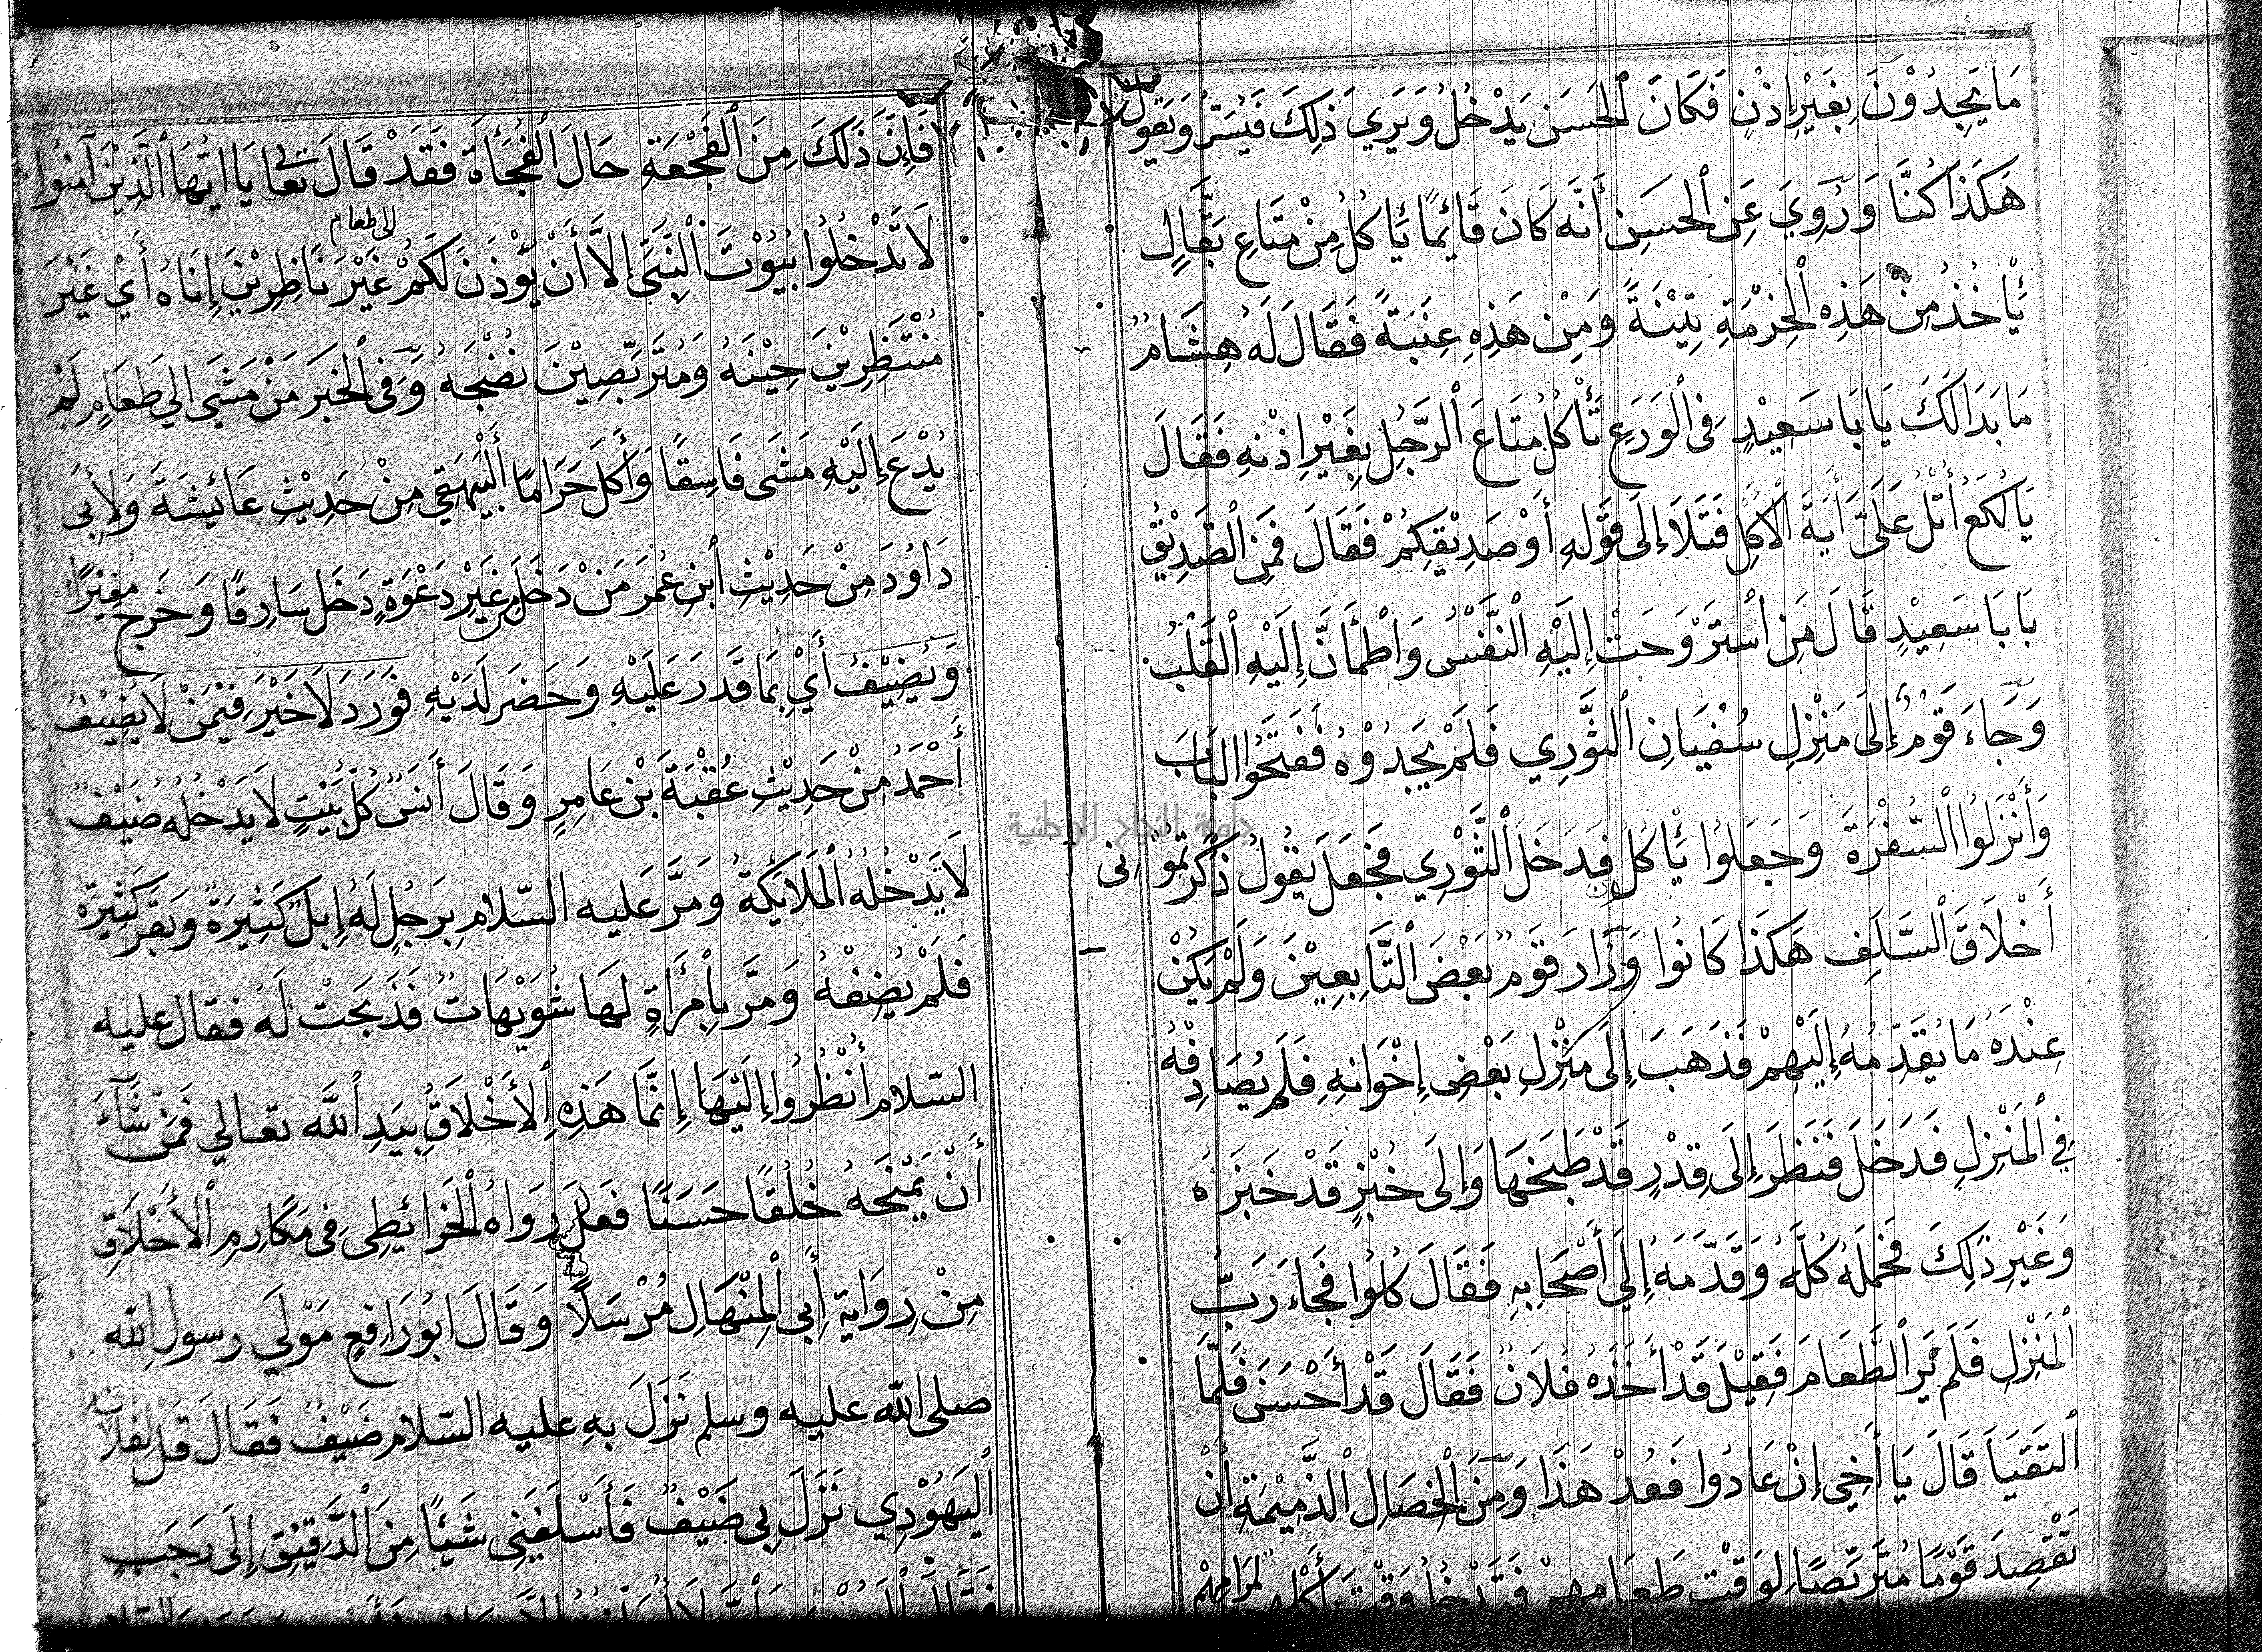 مَا يَجِدُوْنَ بِغَيْرِ إِذْنٍ فَكَانَ ٱلْحَسَن يَدْخُلُ وَيَرَي ذٰلِكَ فَيُسَرُّ وَيَقُولُ
هَكَذَا كُنَّا وَرُوِيَ عَنِ ٱلحسَنِ أَنَّه كَانَ قَائِمًا يَأكُلُ مِنْ مَتَاعِ بَقَّالٍ
يَأْخُذُ مِنْ هَذِه ٱلْخِرْمَةِ تِيْنَةً وَمِنْ هَذِهِ عِنَبَةً فَقَالَ لَه هِشَامٌ
مَا بَدَا لَكَ يَا بَا سَعِيْدٍ فِى ٱلْوَرَعِ تَأْكُلُ مَتَاعَ ٱلرَّجُلِ بِغَيْرِ إِذْنِهِ فَقَالَ
يَا لُكَعُ أُتْلُ عَلَىَّ أَيَةَ ٱلْأَكْلِ فَتَلَا إِلَى قَوْلِهِ أَوْ صَدِيْقِكُمْ فَقَالَ فَمَنِ ٱلصَّدِيْقُ
يَا بَا سَعِيْدٍ قَالَ مَنِ ٱسْتَرْوَحَتْ إِلَيْهِ ٱلنَّفْسُ وَٱطْمَأَنَّ إِلَيْهِ ٱلْقَلْبُ
وَجَاءَ قَوْمٌ إِلَى مَنْزِلِ سُفْيَانِ ٱلثَّوْرِي فَلَمْ يَجِدُوْهُ فَفَتَحُوا البَابَ
وَأَنْزَلُوا ٱلسُّفْرَةَ وَجَعَلُوا يَأكُلُونَ فَدَخَلَ ٱلثَّوْرِي فَجَعَلَ يَقُولُ ذَكَّرْتُمُونِى
أَخْلَاقَ ٱلسَّلَفِ هَكَذَا كَانُوا وَزَارَ قَومٌ بَعْضَ ٱلتَّابِعِيْنَ وَلَمْ يَكُنْ
عِنْدَهُ مَا يُقَدِّمُهُ إِلَيْهِمْ فَذَهَبَ إِلَى مَنْزِلِ بَعْضِ إِخْوَانِهِ فَلَم يُصَادِفْهُ
فِي ٱلْمَنْزِلِ فَدَخَلَ فَنَظَرَ إِلَى قِدْرٍ قَدْ طَبَخَهَا وَإِلَى خُبْزٍ قَدْ خَبَزَهُ
وَغَيْرِ ذٰلِكَ فَحَمَلَهُ كُلَّهُ وَقَدَّمَهُ إِلَي أَصْحَابِهِ فَقَالَ كُلُوا فَجَاءَ رَبُّ
ٱلْمَنْزِلِ فَلَم يَرَ ٱلطَّعَامَ فَقِيْلَ قَدْ أَخَذَهُ فُلَانٌ فَقَالَ قَدْ أَحْسَنَ فَلَمَّا
ٱلتَقَيَا قَالَ يَا أَخِي إِنْ عَادُوا فَعُدْ هَذَا وَمِنَ ٱلْخِصَالِ ٱلذَّمِيْمَةِ أَنْ
تَقْصِدَ قَوْمًا مُتَرَبِّصًا لِوَقْتِ طَعَامِهِمْ فَتَدْخُلَ وَقْتَ أَكْلِهِم
فَإِنَّ ذَلَكَ مِنَ ٱلْفَجْعَةِ حَالَ ٱلْفُجْأَةِ فَقَدْ قَالَ تعالى يَا ايُّهَا ٱلَّذِيْنَ آمَنُوا
لَا تَدْخُلُوا بُيُوْتَ ٱلْنَّبِىِّ إِلاَّ أَنْ يُّؤْذَنَ لَكُمْ إلى طعام غَيْرَ نَاظِرِيْنَ إِنَاهُ أَيْ غَيْرَ
مُنْتَظِرِيْنَ حِيْنَهُ وَمُتَرَبِّصِيْنَ نُضْجَهُ وَفِى ٱلْخَبَر مَنْ مَشَى الي طَعَامٍ لَمْ
يُدْعَ إِلَيْهِ مَشَى فَاسِقًا وَأَكَلَ حَرَامًا ٱلْبَيْهَقِي مِنْ حَدِيْثِ عَائِشَةَ وَلِأَبِى
دَاوُدَ مِنْ حَدِيْثِ ٱبْنِ عُمَرَ مَنْ دَخَلَ مِنْ غَيْرِ دَعْوَةٍ دَخَل سَارِقًا وَخَرَجَ مُغِيْرًا
وَيُضِيْفُ أَيْ بِمَا قَدَرَ عَلَيْهِ وَحَضَرَ لَدَيْهِ فَوَرَدَ لَا خَيْرَ فِيْمَنْ لَا يُضِيْفُ
أَحْمَدُ مِنْ حَدِيْثِ عُقْبَةَ بْنِ عَامِرٍ وَقَالَ أَنَسٌ كُلُّ بَيْتٍ لَا يَدْخُلُه ضَيْفٌ
لَا يَدْخُلُهُ ٱلْمَلَائِكَةُ وَمَرَّ عَليه السّلام بِرَجُلٍ لَهُ إِبِلٌ كَثِيرَةٌ وَبَقَرٌ كَثِيْرَةٌ
فَلَمْ يُضِفْهُ وَمَرَّ بِٱمْرَأَةٍ لَهَا شُوَيْهَاتٌ فَذَبَحَتْ لَهُ فقال عليه
السّلام أُنْظُرُوا إِلَيْهَا إِنَّمَا هَذِهِ ٱلأَخْلَاقُ بِيَدِ ٱللَّه تعالي فَمَنْ شَآءَ
أَنْ يَمْنَحَهُ خُلُقًا حَسَنًا فَعَلَ رَوَاهُ ٱلْخَرَائِطِى فِى مَكَارِمِ ٱلْأَخْلَاقِ
مِنْ رِوَايَةِ أَبِى ٱلْمِنْهَالِ مُرْسَلًا وَقَالَ ابُو رَافِعٍ مَوْلَي رسول الله
صلى الله عليه وسلم نَزَلَ بِهِ عليه السّلام ضَيْفٌ فَقَالَ قُلْ لِفُلَانٍ
ٱلْيَهُوْدِي نَزَلَ بِي ضَيْفٌ فَأَسْلِفْنِى شَيْئًا مِنَ ٱلْدَّقِيْقِ إِلَى رَجَبٍ
جامعة النجاح الوطنية